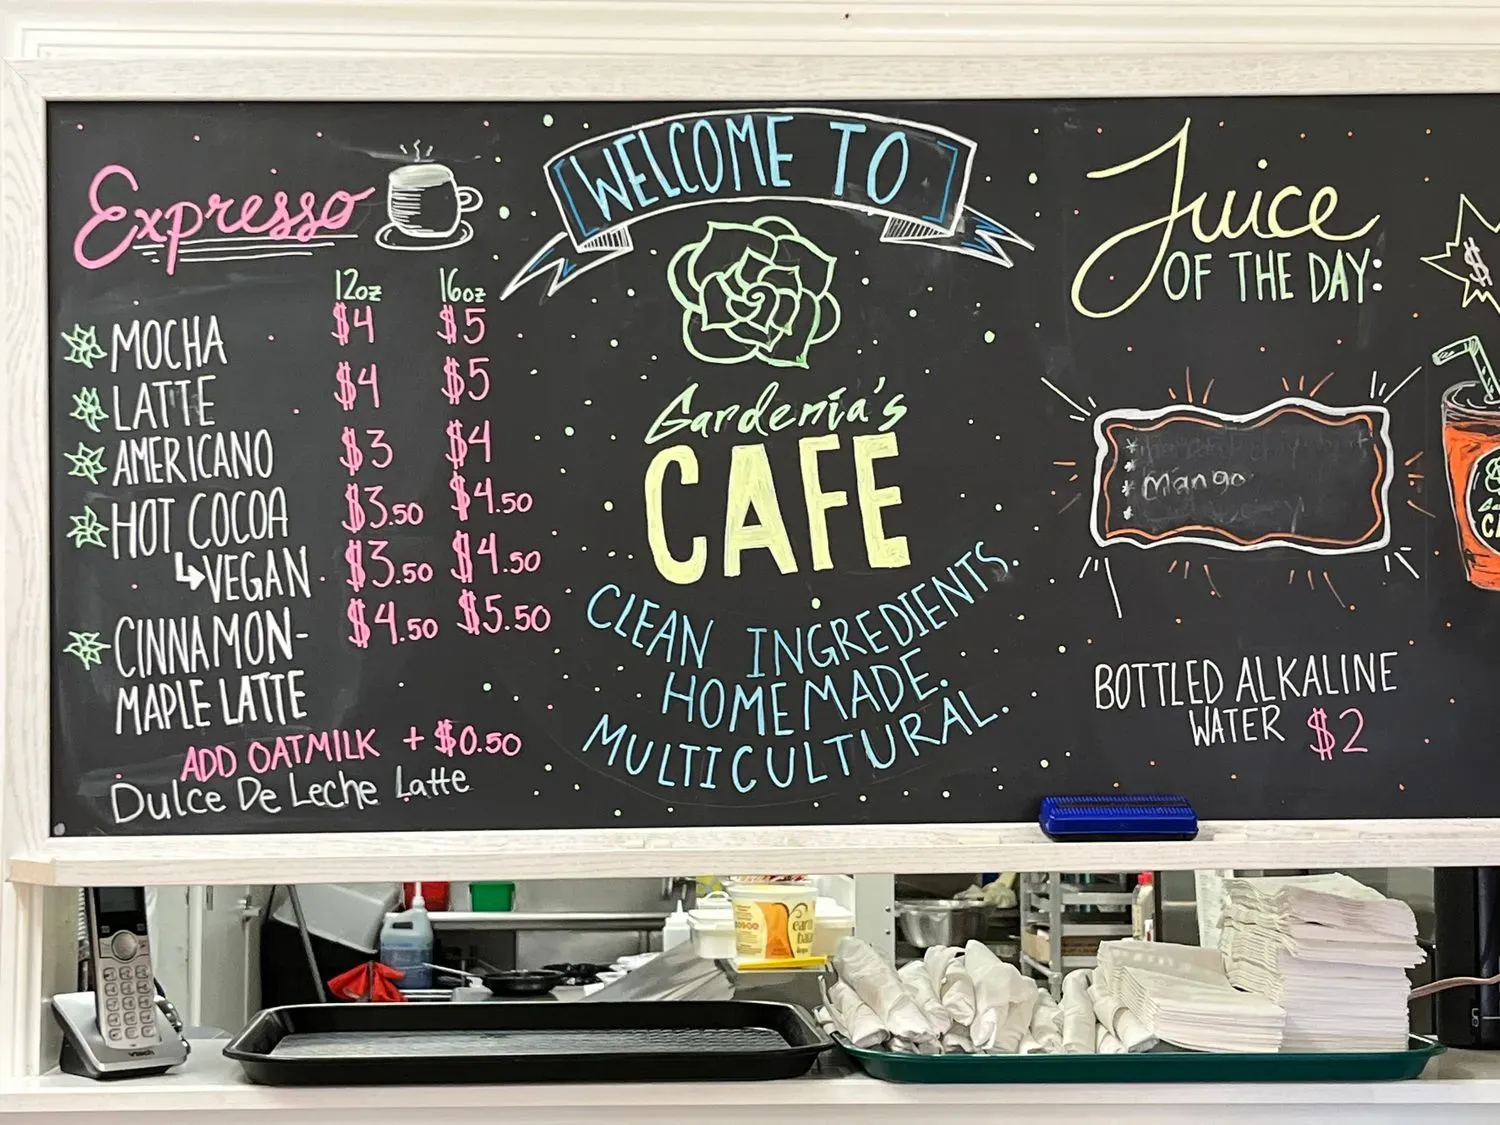 Expresso
12oz 16oz
MOCHA $4 $5
LATTE $4 $5
AMERICANO $3 $4
HOT COCOA $3.50 $4.50
↳VEGAN $3.50 $4.50
CINNAMON- $4.50 $5.50
MAPLE LATTE
ADD OATMILK + $0.50
Dulce De Leche Latte
WELCOME TO
Gardenia's
CAFE
CLEAN INGREDIENTS.
HOMEMADE.
MULTICULTURAL.
Juice
OF THE DAY:
$
* Mango
BOTTLED ALKALINE
WATER $2
vtech